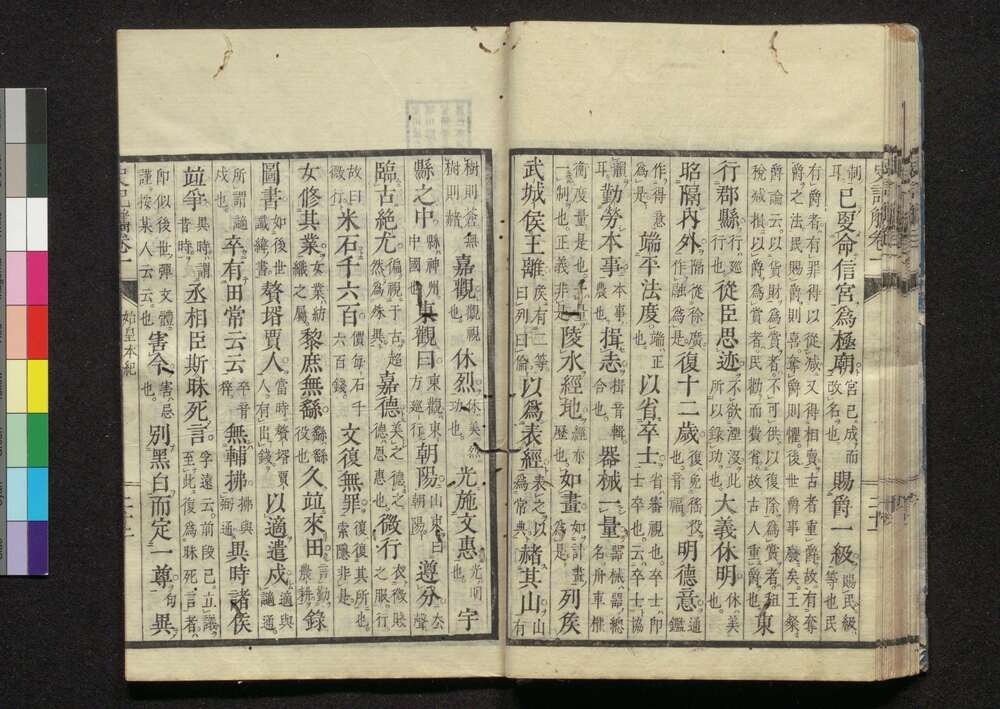 制耳已更命信宮爲極廟宮已成而改名也賜爵一級賜民級等也民
有爵者有罪得以從減又得相賣古者重爵故有奪爵之法民賜爵則喜奪爵則懼後世爵事廢矣王粲
爵論云以貨財爲賞者不可供以復除爲賞者租稅減損以爵爲賞者民勸而費省故古人重爵也東
行郡縣行巡行也從臣思迹不欲湮沒此所以錄功也大義休明休美也
昭隔內外隔從徐廣作融爲是復十二歲復免徭役也音福明德意通鑑
作得意爲是端平法度端正也以省卒士省審視也卒士卽士卒也云卒士協
韻耳勤勞本事本事農也揖志揖音輯合也器械一量器械器總名舟車權
衡度量是也一制也正義非是陵水經地經亦歷也如畫如計畫爲是列矦
武城侯王離矦有二等曰列曰倫以爲表經表之以爲常典赭其山山有
樹則蒼無樹則赭嘉觀觀視也休烈休美烈功也光施文惠光明也宇
縣之中縣神州中國也東觀曰東觀東方巡行朝陽山東曰朝陽遵分奈聲
臨古絶尤徧視于古超然爲殊異嘉德美之德之德恩惠也微行衣微賤之服行
故曰微行米石千六百價每石千六百錢文復無罪復復其所也索隱非是
女修其業女業紡織之屬黎庶無繇繇徭役也久竝來田言勤農耕錄
圖書如後世讖緯書贅壻賈人當時贅壻賈人人有出錢以適遣戍適與謫通
所謂謫戍也卒有田常云云卒音猝無輔拂拂與弼通異時諸侯
竝爭異時謂昔時丞相臣斯昧死言孚遠云前段已立議至此復爲昧死言者
卽似後世彈文體謹按某人云云也害今害忌也別黑白而定一尊句異
史記觿卷一 始皇本紀